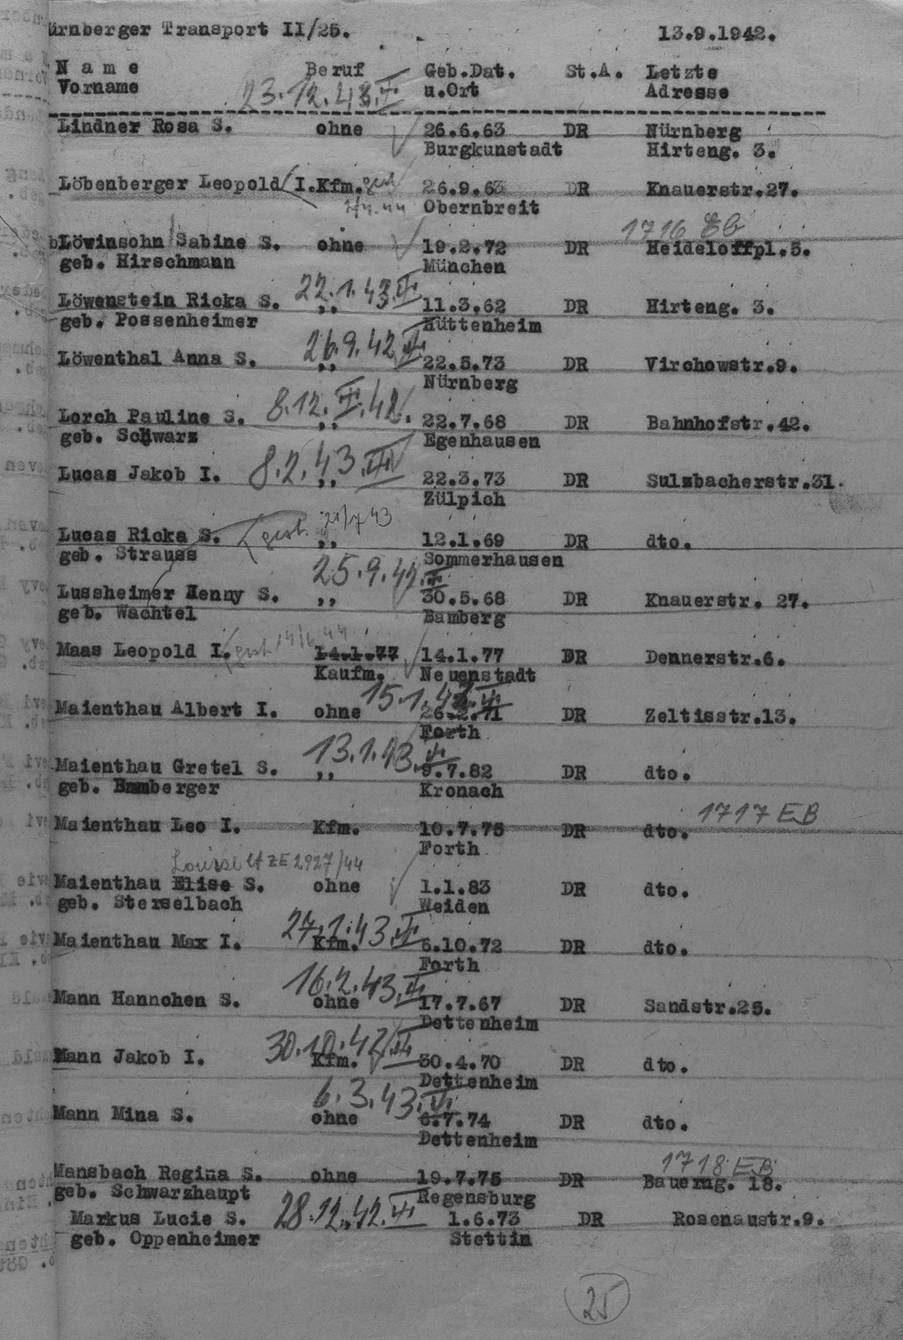 ürnberger Transport II/25. 13.9.1942.
N a m e Beruf Geb.Dat. St.A. Letzte
Vorname u.Ort Adresse
23.12.43.
Lindner Rosa S. ohne 26.6.63 DR Nürnberg
Burgkunstadt Hirteng. 3.
Löbenberger Leopold I. Kfm. gest 26.9.63 DR Knauerstr.27.
Obernbreit
1716 EB
Löwinsohn Sabine S. ohne 19.2.72 DR Heideloffpl.5.
geb. Hirschmann München
22.1.43.
Löwenstein Ricka S. ,, 11.3.62 DR Hirteng. 3.
geb. Possenheimer Hüttenheim
26.9.42
Löwenthal Anna S. ,, 22.5.73 DR Virchowstr.9.
Nürnberg
8.12. 42.
Lorch Pauline S. ,, 22.7.68 DR Bahnhofstr.42.
geb. Schwarz Egenhausen
8.2.43.
Lucas Jakob I. ,, 22.3.73 DR Sulzbacherstr.31.
Zülpich
gest. 21/7 43
Lucas Ricka S. ,, 12.1.69 DR dto.
geb. Strauss Sommerhausen
25.9.42.
Lussheimer Jenny S. ,, 30.5.68 DR Knauerstr. 27.
geb. Wachtel Bamberg
Maas Leopold I. gest 14.1.77 14.1.77 DR Dennerstr.6.
Kaufm. Neuenstadt
15.1.43
Maienthau Albert I. ohne 26.2.71 DR Zeltisstr.13.
Forth
13.1.43.
Maienthau Gretel S. ,, 9.7.82 DR dto.
geb. Bamberger Kronach
1717 EB
Maienthau Leo I. Kfm. 10.7.75 DR dto.
Forth
Louise lt ZE 2927/44
Maienthau Elise S. ohne 1.1.83 DR dto.
geb. Sterselbach Weiden
27.1.43.
Maienthau Max I. Kfm. 6.10.72 DR dto.
Forth
16.2.43.
Mann Hannchen S. ohne 17.7.67 DR Sandstr.25.
Dettenheim
30.10.42
Mann Jakob I. Kfm. 30.4.70 DR dto.
Dettenheim
6.3.43.
Mann Mina S. ohne 6.7.74 DR dto.
Dettenheim
1718 EB
Mansbach Regina S. ohne 19.7.75 DR Bauerng. 18.
geb. Schwarzhaupt Regensburg
Markus Lucie S. 28.12.42. 1.6.73 DR Rosenaustr.9.
geb. Oppenheimer Stettin
25